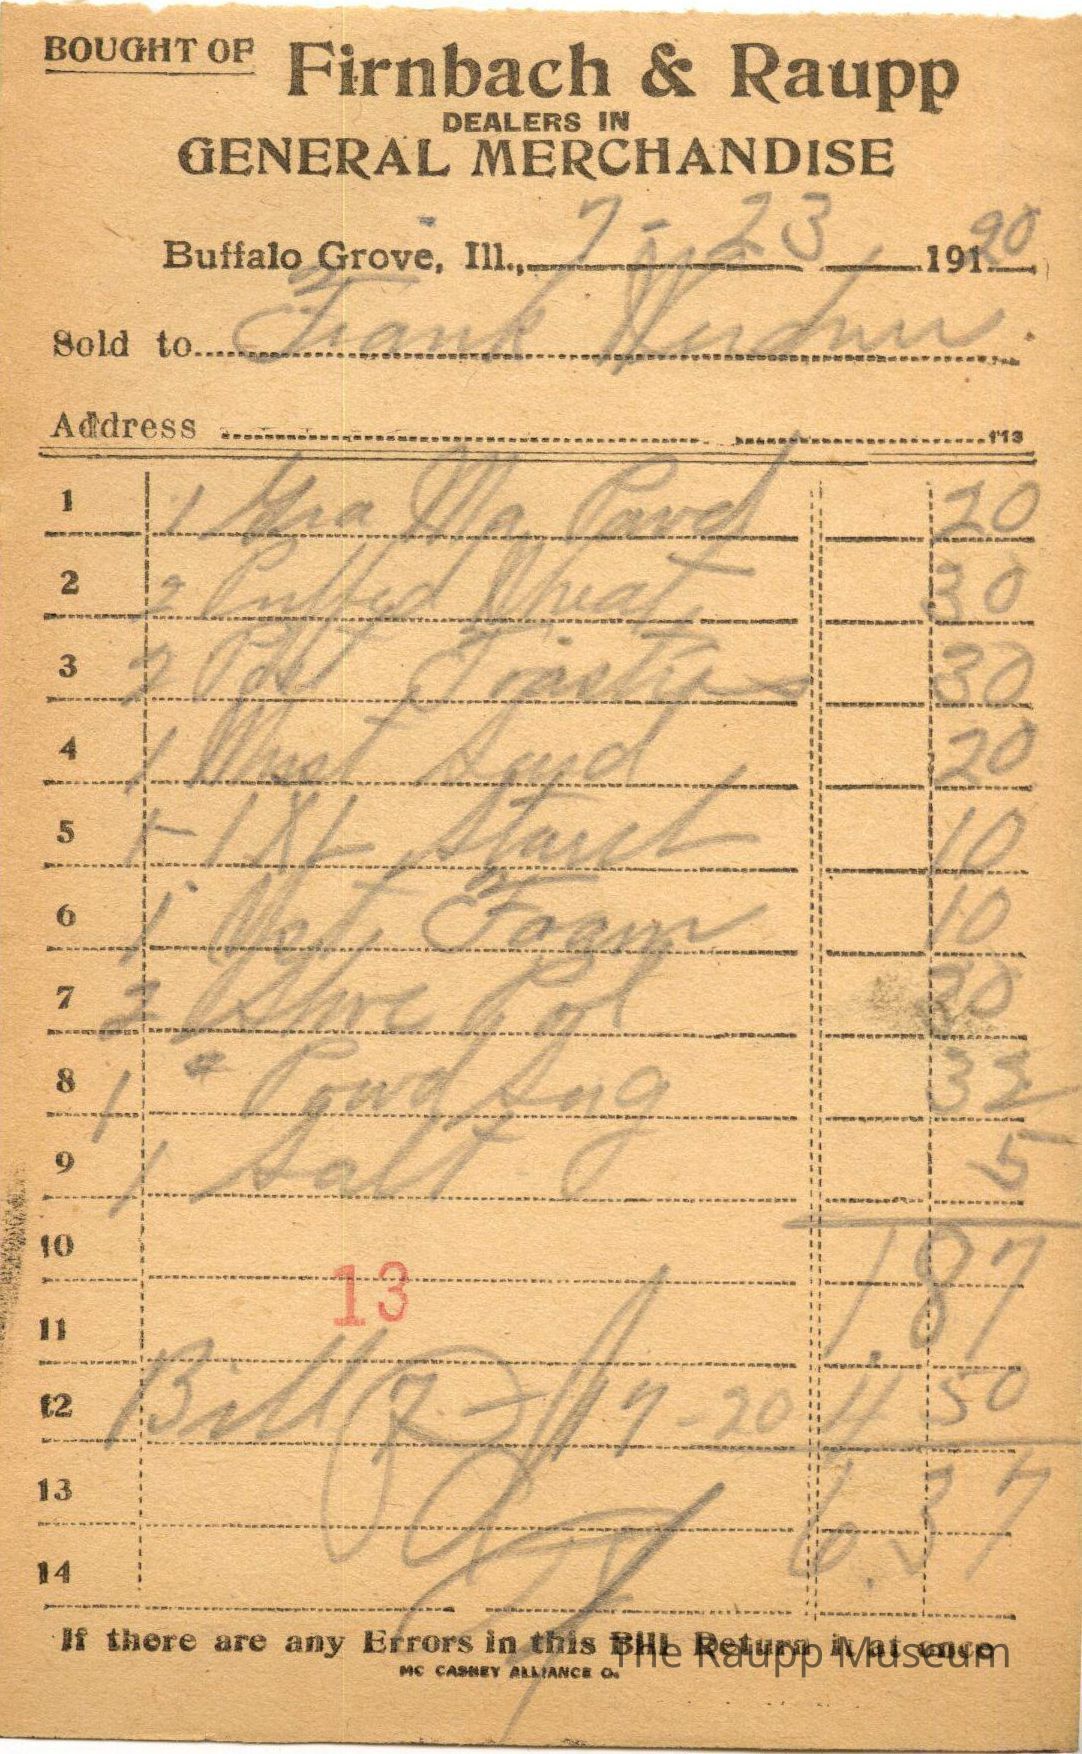 BOUGHT OF Firnbach & Raupp
DEALERS IN
GENERAL MERCHANDISE
Buffalo Grove, Ill., 7-23 191 20
Sold to Frank
Address
1 1 Gra Ma Powd 20
2 2 Puffed Wheat 30
3 2 Post Toasties 30
4 1 Must Seed 20
5 1 Starch 10
6 1 Foam 10
7 2 Shoe Pol 30
8 1 Powd Sug 32
9 1 Salt 5
10 1.87
13
11
12 Bill 7-20 4 50
13 6.37
14
If there are any Errors in this Bill Return it at once
The Raupp Museum